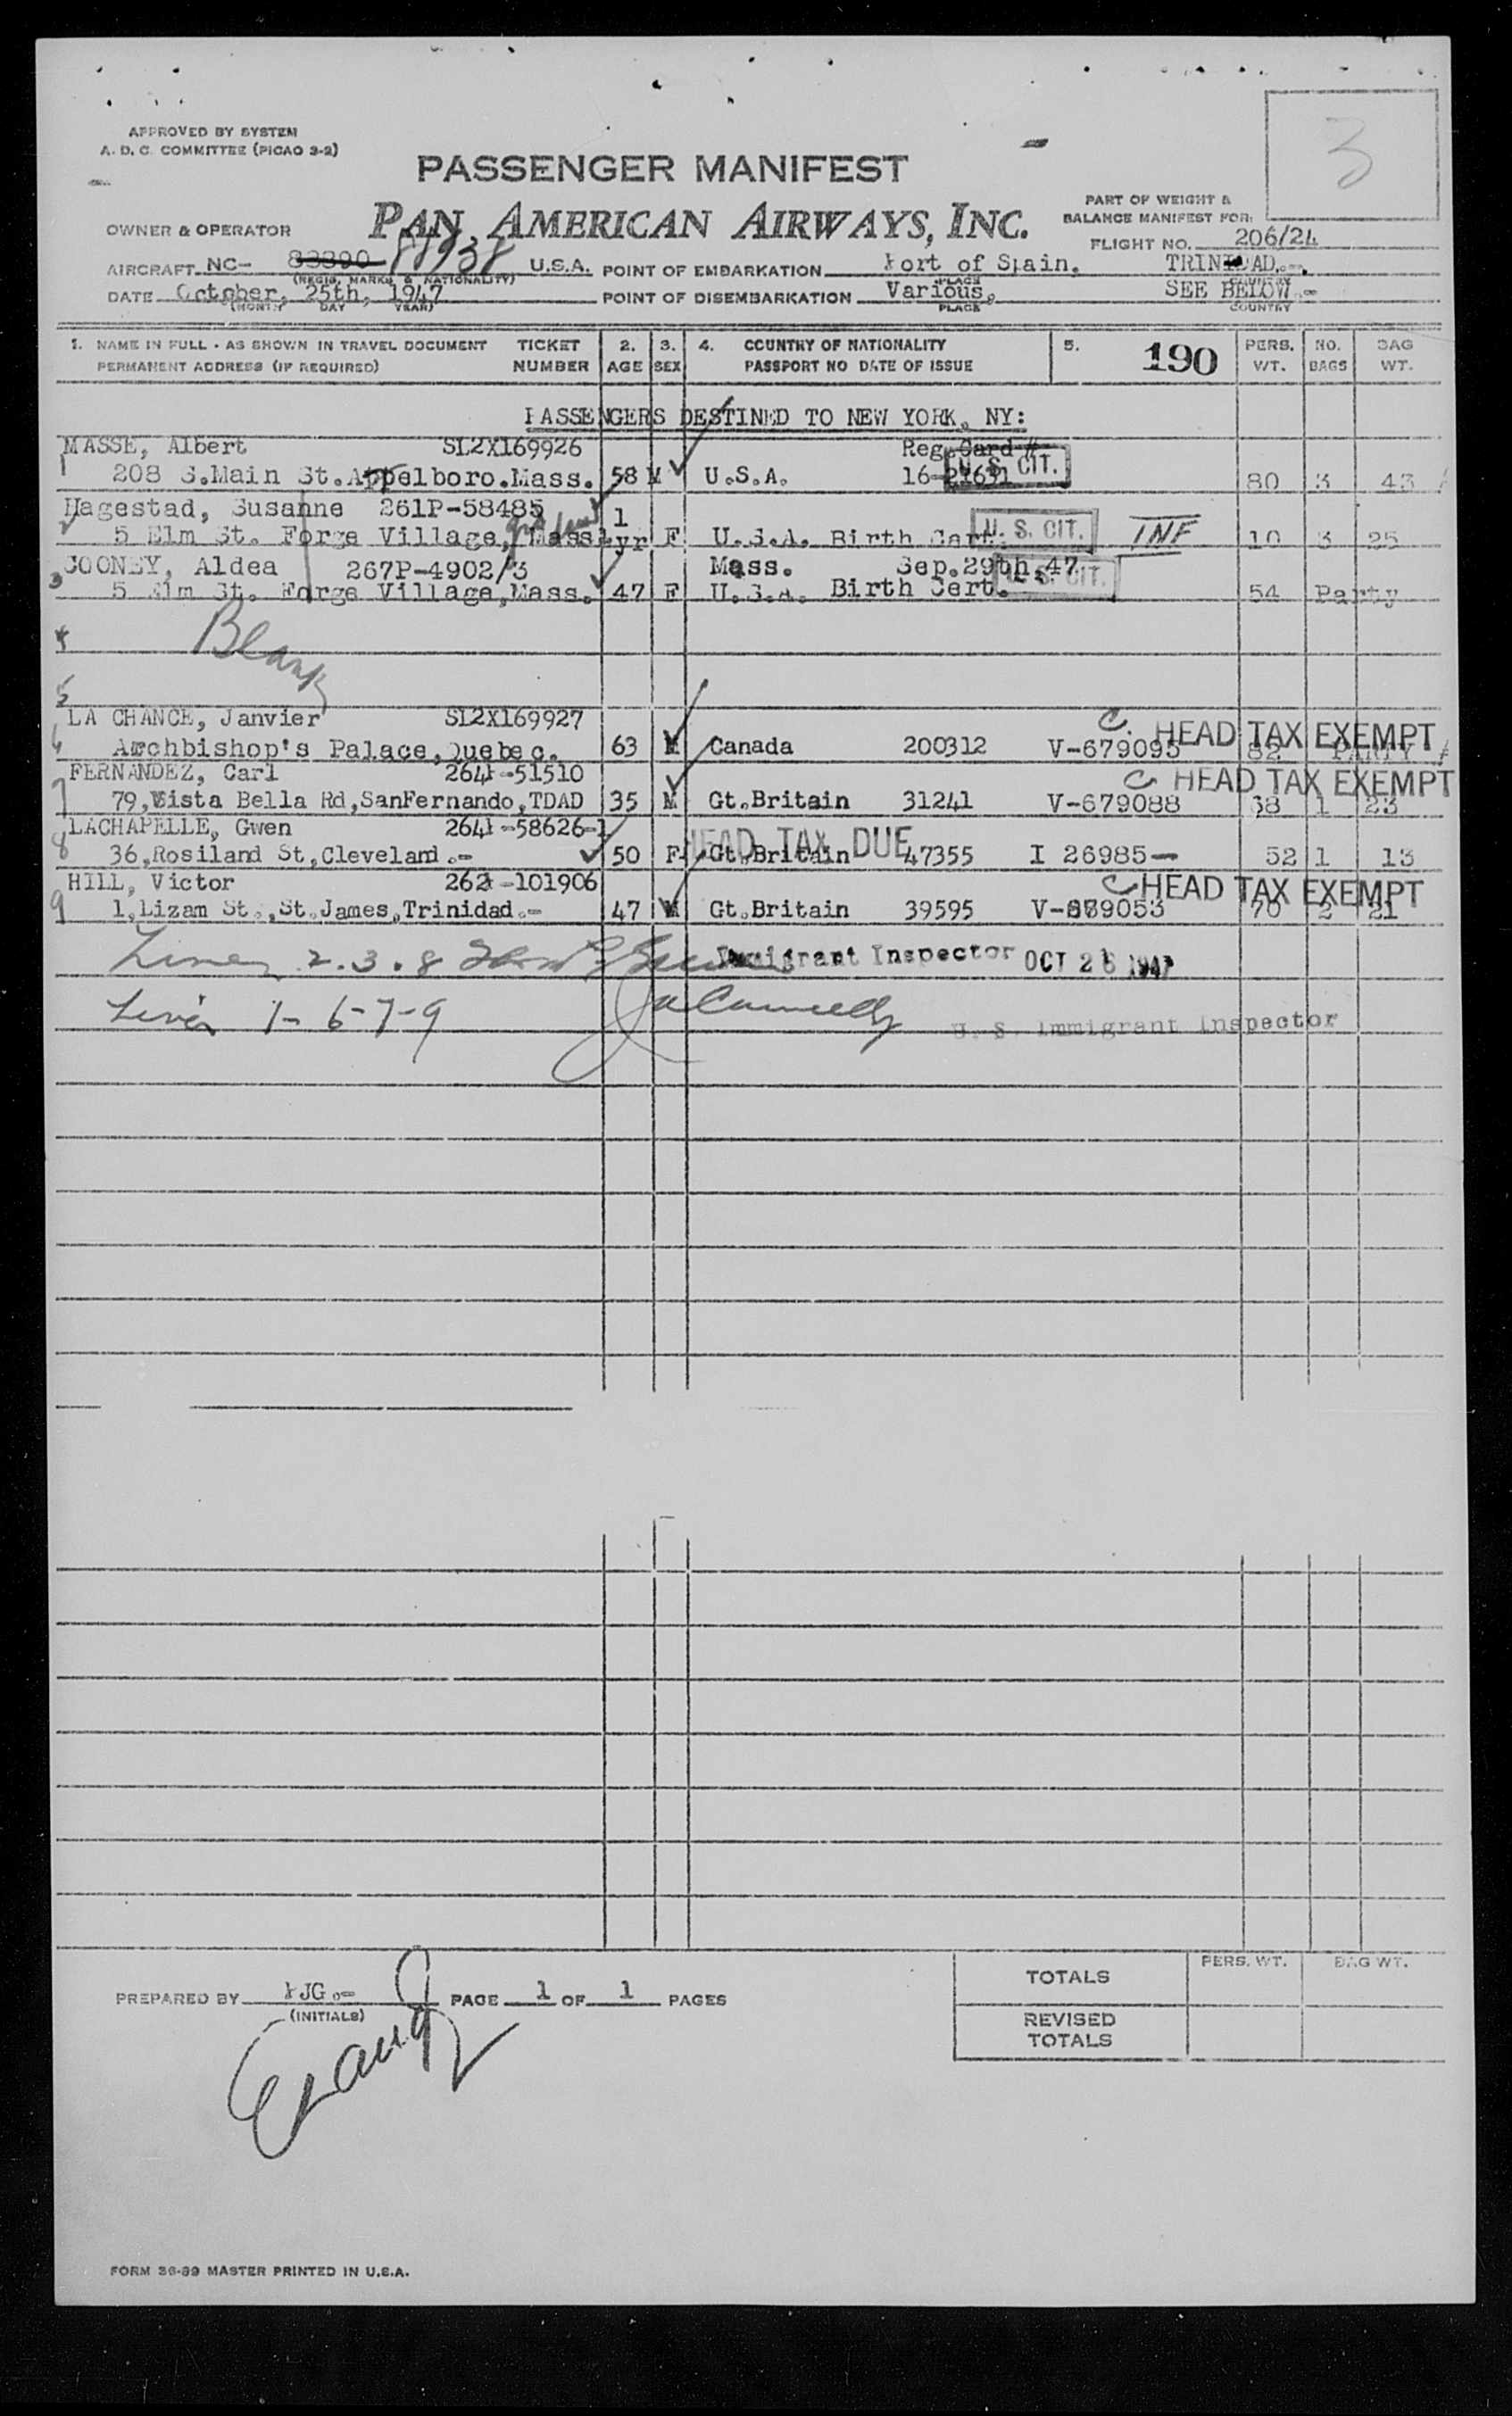 3
APPROVED BY SYSTEM
A. D. C. COMMITTEE (PICAO 3-2)
PASSENGER MANIFEST
PART OF WEIGHT &
BALANCE MANIFEST FOR:
OWNER & OPERATOR PAN AMERICAN AIRWAYS, INC.
FLIGHT NO. 206/24
AIRCRAFT NC- 83390 88938 U.S.A. POINT OF EMBARKATION Port of Spain, TRINIDAD.-
(REGIS. MARKS & NATIONALITY) PLACE COUNTRY
DATE October, 25th, 1947 POINT OF DISEMBARKATION Various, SEE BELOW.-
(MONTH DAY YEAR) PLACE COUNTRY
1. NAME IN FULL - AS SHOWN IN TRAVEL DOCUMENT TICKET 2. 3. 4. COUNTRY OF NATIONALITY 5. 190 PERS. NO. BAG
PERMANENT ADDRESS (IF REQUIRED) NUMBER AGE SEX PASSPORT NO DATE OF ISSUE WT. BAGS WT.
PASSENGERS DESTINED TO NEW YORK, NY:
MASSE, Albert SL2X169926 Reg.Card #
1 208 S.Main St. Mass. 58 M U.S.A. 16- U. S. CIT. 80 3 43
Hagestad, Susanne 261P-58485 1
2 5 Elm St. Forge Village, Mass. yr F U.S.A. Birth Cert. U. S. CIT. INF 10 3 25
COONEY, Aldea 267P-4902/3 Mass. Sep.29th 47
3 5 Elm St. Forge Village, Mass. 47 F U.S.A. Birth Cert. U. S. CIT. 54 Party
4 Blank
5
LA CHANCE, Janvier SL2X169927 C. HEAD TAX EXEMPT
6 Archbishop's Palace,Quebec. 63 M Canada 200312 V-679095 82 PARTY
FERNANDEZ, Carl 2641-51510 C HEAD TAX EXEMPT
7 79,Vista Bella Rd,SanFernando,TDAD 35 M Gt.Britain 31241 V-679088 68 1 23
LACHAPELLE, Gwen 2641-58626-1 HEAD TAX DUE
8 36,Rosiland St,Cleveland.- 50 F Gt.Britain 47355 I 26985- 52 1 13
HILL, Victor 262-101906 C HEAD TAX EXEMPT
9 1,Lizam St.,St.James,Trinidad.- 47 M Gt.Britain 39595 V-679053 70 2 21
Lines 2.3.8 Immigrant Inspector OCT 26 1947
Lines 1-6-7-9 U. S. Immigrant Inspector
TOTALS PERS. WT. BAG WT.
PREPARED BY PJG.- PAGE 1 OF 1 PAGES
(INITIALS)
REVISED
TOTALS
FORM 36-39 MASTER PRINTED IN U.S.A.